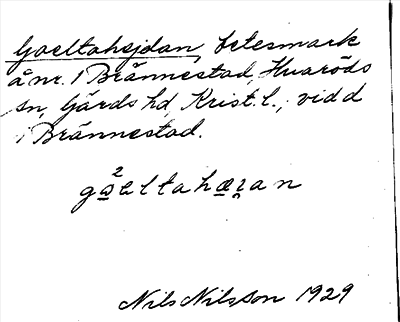 Goeltahejdan, betesmark
å nr. 1 Brännestad, Huaröds
sn, Gärds hd, Krist. l., vid d
i Brännestad.
Nils Nilsson 1929